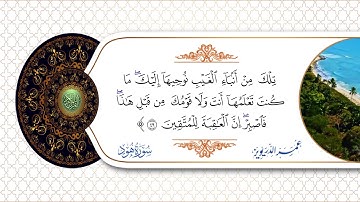 تِلْكَ مِنْ أَنۢبَآءِ ٱلْغَيْبِ نُوحِيهَآ إِلَيْكَ ۖ مَا
كُنتَ تَعْلَمُهَآ أَنتَ وَلَا قَوْمُكَ مِن قَبْلِ هَٰذَا ۖ
فَٱصْبِرْ ۖ إِنَّ ٱلْعَٰقِبَةَ لِلْمُتَّقِينَ ﴿٤٩﴾
سُورَةُ هُود